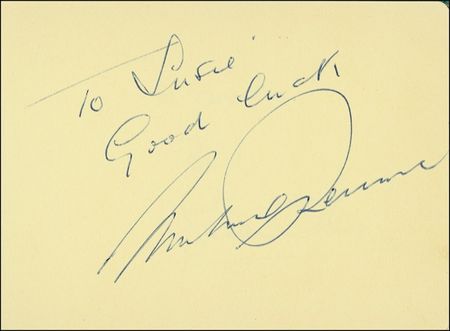 To Susie
Good luck
Michael Denison